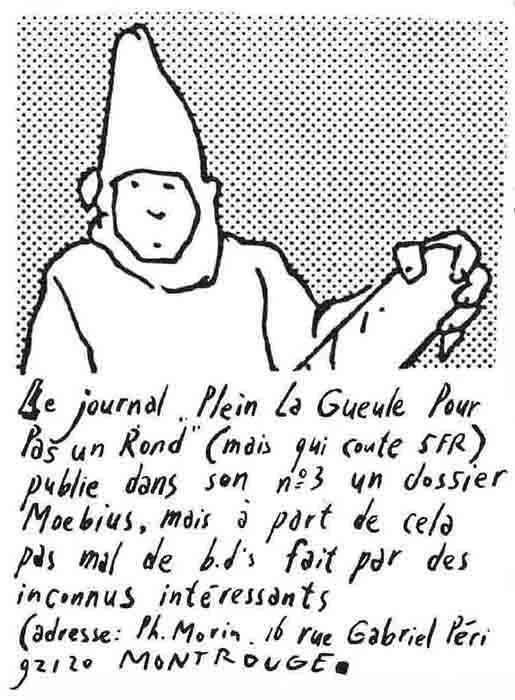 Le journal "Plein La Gueule Pour
Pas un Rond" (mais qui coute 5FR)
publie dans son nº3 un dossier
Moebius, mais à part de cela
pas mal de b.d's fait par des
inconnus intéressants
(adresse: Ph. Morin. 16 rue Gabriel Péri
92120 MONTROUGE.